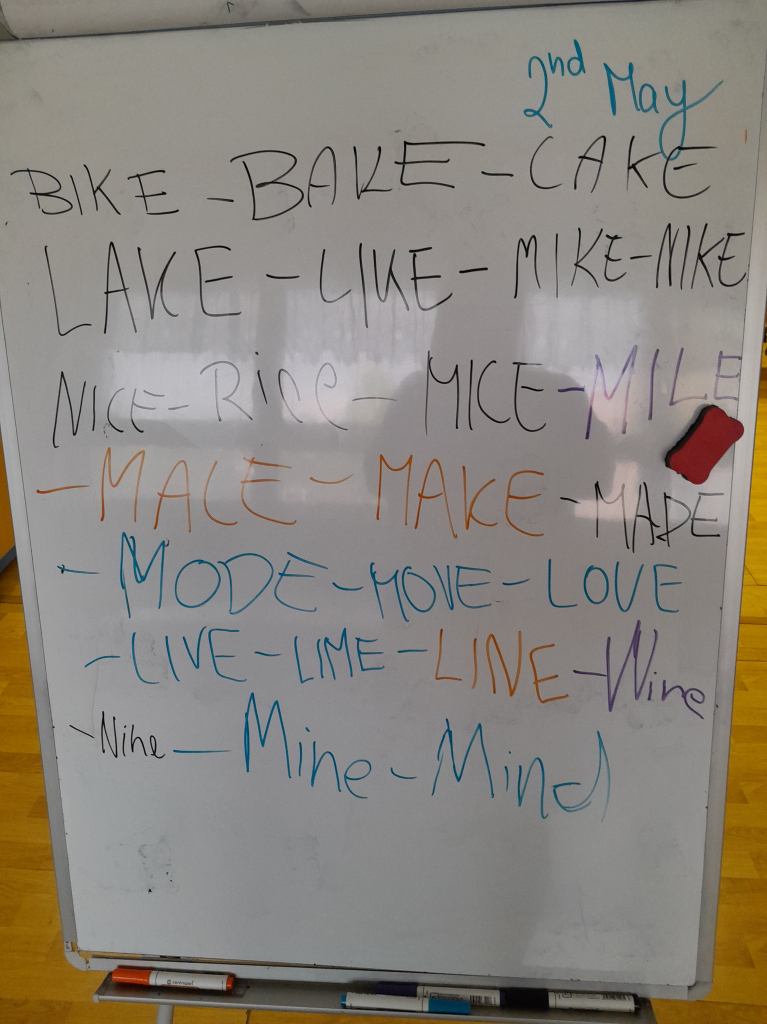 2nd May
BIKE - BAKE - CAKE
LAKE - LIKE - MIKE - NIKE
NICE - Rice - MICE - MILE
- MALE - MAKE - MADE
- MODE - MOVE - LOVE
- LIVE - LIME - LINE - Wine
- Nine - Mine - Mind